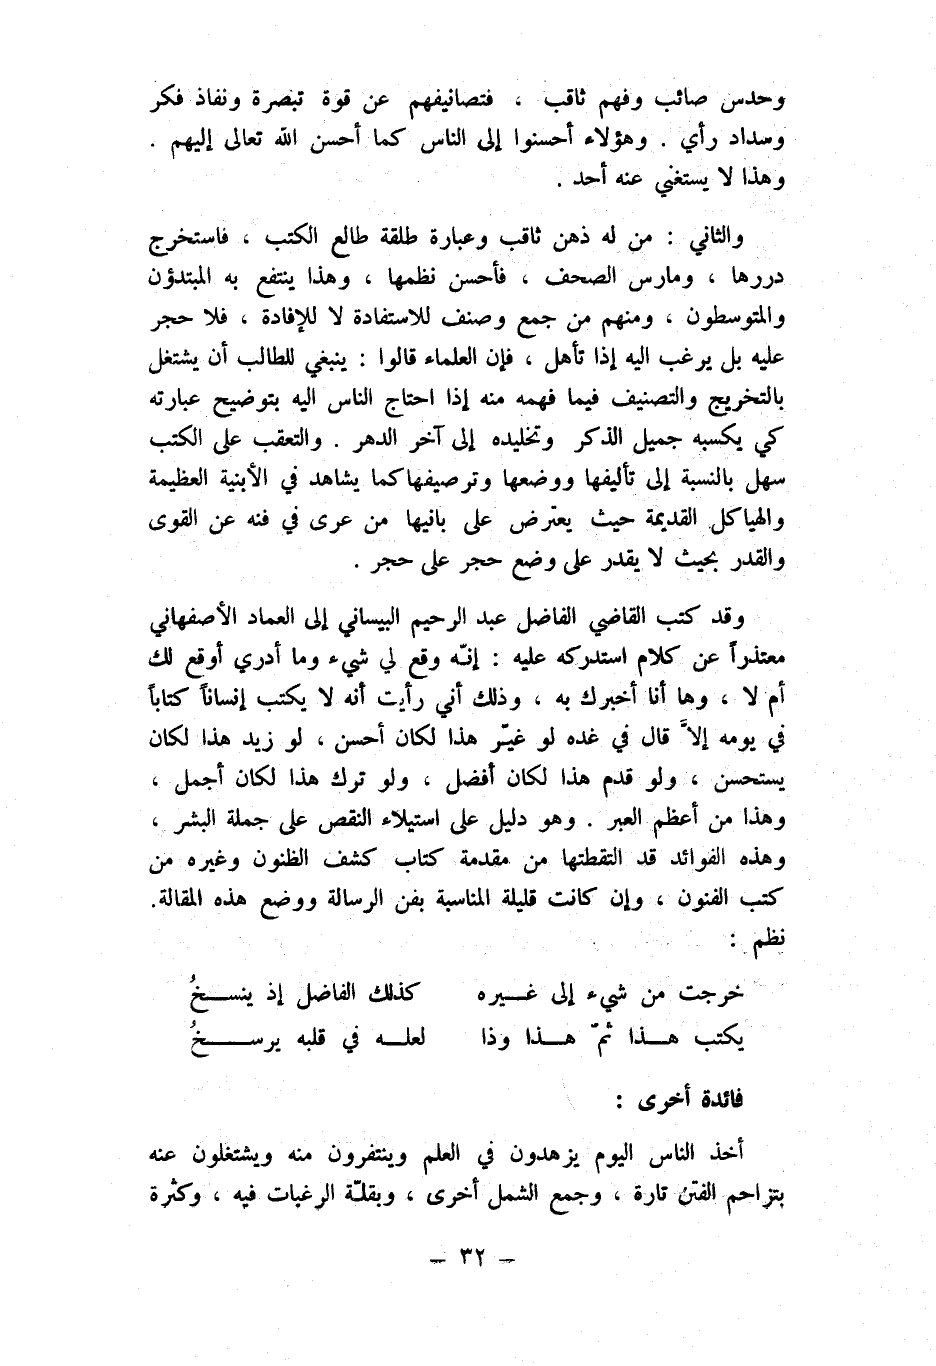 وحدس صائب وفهم ثاقب ، فتصانيفهم عن قوة تبصرة ونفاذ فكر
وسداد رأي . وهؤلاء أحسنوا إلى الناس كما أحسن الله تعالى إليهم .
وهذا لا يستغني عنه أحد .
والثاني : من له ذهن ثاقب وعبارة طلقة طالع الكتب ، فاستخرج
دررها ، ومارس الصحف ، فأحسن نظمها ، وهذا ينتفع به المبتدؤن
والمتوسطون ، ومنهم من جمع وصنف للاستفادة لا للإفادة ، فلا حجر
عليه بل يرغب اليه إذا تأهل ، فإن العلماء قالوا : ينبغي للطالب أن يشتغل
بالتخريج والتصنيف فيما فهمه منه إذا احتاج الناس اليه بتوضيح عبارته
كي يكسبه جميل الذكر وتخليده إلى آخر الدهر . والتعقب على الكتب
سهل بالنسبة إلى تأليفها ووضعها وترصيفها كما يشاهد في الأبنية العظيمة
والهياكل القديمة حيث يعترض على بانيها من عرى في فنه عن القوى
والقدر بحيث لا يقدر على وضع حجر على حجر .
وقد كتب القاضي الفاضل عبد الرحيم البيساني إلى العماد الأصفهاني
معتذراً عن كلام استدركه عليه : إنّه وقع لي شيء وما أدري أوقع لك
أم لا ، وها أنا أخبرك به ، وذلك أني رأيت أنه لا يكتب إنساناً كتاباً
في يومه إلاَّ قال في غده لو غيّر هذا لكان أحسن ، لو زيد هذا لكان
يستحسن ، ولو قدم هذا لكان أفضل ، ولو ترك هذا لكان أجمل ،
وهذا من أعظم العبر . وهو دليل على استيلاء النقص على جملة البشر ،
وهذه الفوائد قد التقطتها من مقدمة كتاب كشف الظنون وغيره من
كتب الفنون ، وإن كانت قليلة المناسبة بفن الرسالة ووضع هذه المقالة.
نظم :
خرجت من شيء إلى غـــيره كذلك الفاضل إذ ينســـخُ
يكتب هـــذا ثمّ هـــذا وذا لعلـــه في قلبه يرســـــخُ
فائدة أخرى :
أخذ الناس اليوم يزهدون في العلم وينتفرون منه ويشتغلون عنه
بتزاحم الفتن تارة ، وجمع الشمل أخرى ، وبقلّة الرغبات فيه ، وكثرة
– ٣٢ –